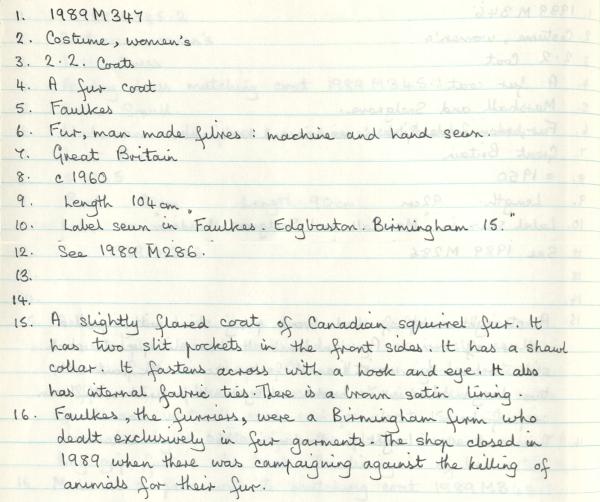 1. 1989 M 347
2. Costume, women's
3. 2.2. Coats
4. A fur coat
5. Faulkes
6. Fur, man made fibres : machine and hand sewn.
7. Great Britain
8. c 1960
9. Length 104 cm.
10. Label sewn in "Faulkes. Edgbaston. Birmingham 15."
12. See 1989 M286.
13.
14.
15. A slightly flared coat of Canadian squirrel fur. It
has two slit pockets in the front sides. It has a shawl
collar. It fastens across with a hook and eye. It also
has internal fabric ties. There is a brown satin lining.
16. Faulkes, the furriers, were a Birmingham firm who
dealt exclusively in fur garments. The shop closed in
1989 when there was campaigning against the killing of
animals for their fur.